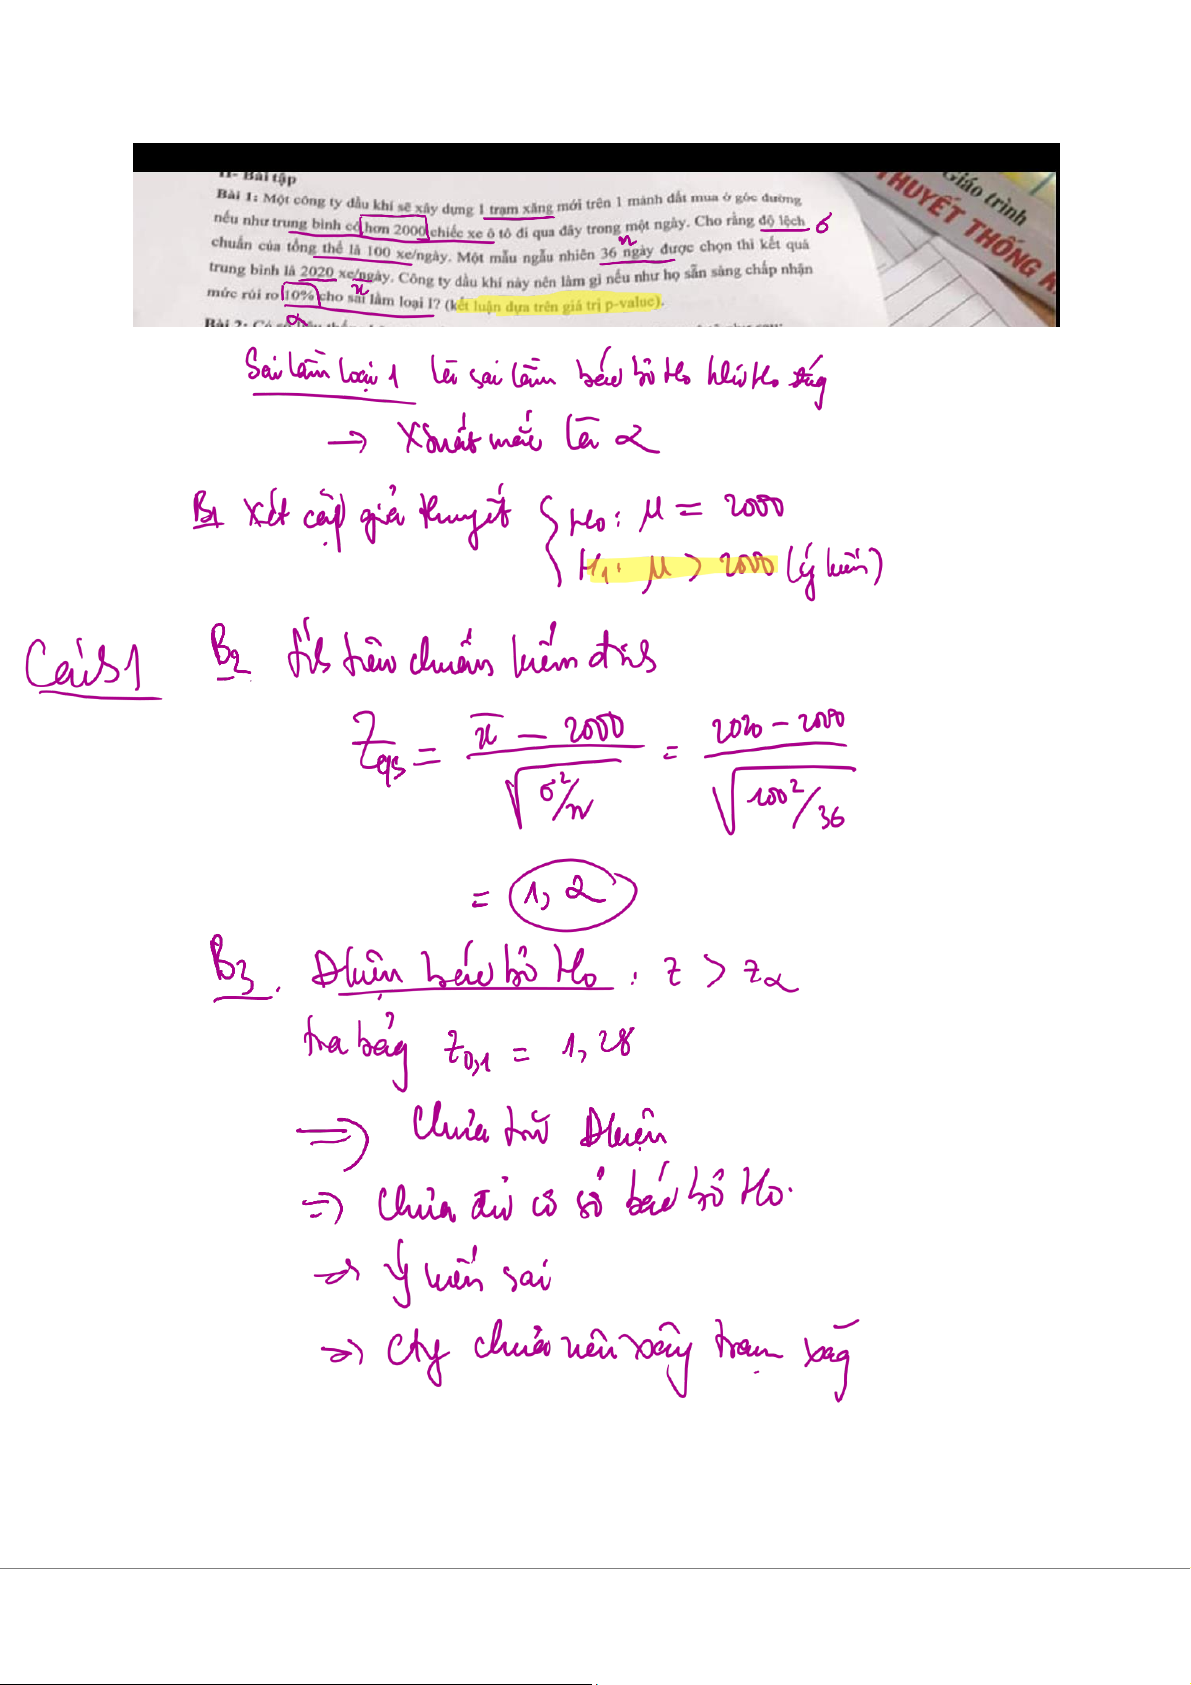 II- Bài tập
Bài 1: Một công ty dầu khí sẽ xây dựng 1 trạm xăng mới trên 1 mảnh đất mua ở góc đường
nếu như trung bình có hơn 2000 chiếc xe ô tô đi qua đây trong một ngày. Cho rằng độ lệch σ
n
chuẩn của tổng thể là 100 xe/ngày. Một mẫu ngẫu nhiên 36 ngày được chọn thì kết quả
trung bình là 2020 xe/ngày. Công ty dầu khí này nên làm gì nếu như họ sẵn sàng chấp nhận
x̄
mức rủi ro 10% cho sai lầm loại I? (kết luận dựa trên giá trị p-value).
α
Bài 2:
Giáo trình
THUYẾT THỐNG K
Sai lầm loại 1 là sai lầm bác bỏ H0 khi H0 đúng
→ Xsuất mắc là α
B1 Xét cặp giả thuyết { H0: μ = 2000
H1: μ > 2000 (ý kiến)
Cách 1
B2 tính tiêu chuẩn kiểm định
Zqs = (x̄ − 2000) / √(σ²/n) = (2020 − 2000) / √(100²/36)
= 1,2
B3. Đkiện bác bỏ H0 : z > zα
tra bảng z0,1 = 1,28
⇒ Chưa t/m đkiện
⇒ Chưa đủ cơ sở bác bỏ H0.
→ Ý kiến sai
→ Cty chưa nên xây trạm xăng